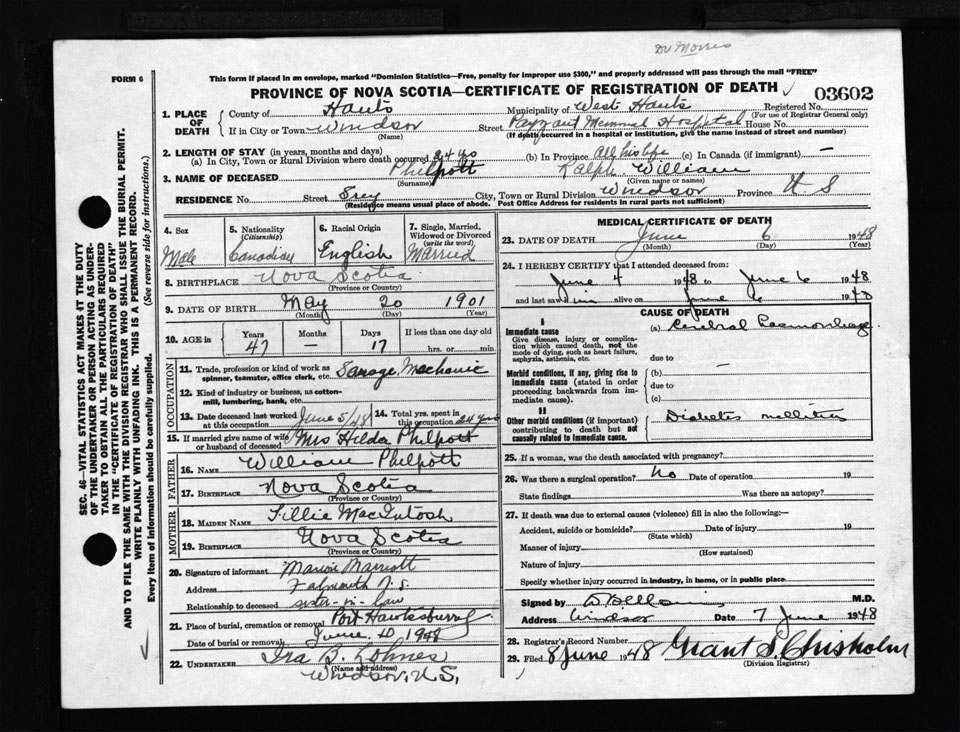 Dr Morris
FORM 6
This form if placed in an envelope, marked "Dominion Statistics—Free, penalty for improper use $300," and properly addressed will pass through the mail "FREE"
PROVINCE OF NOVA SCOTIA—CERTIFICATE OF REGISTRATION OF DEATH
03602
1. PLACE OF DEATH
County of Hants Municipality of West Hants Registered No.
(For use of Registrar General only)
If in City or Town Windsor Street Payzant Memorial Hospital House No.
(Name) (If death occurred in a hospital or institution, give the name instead of street and number)
2. LENGTH OF STAY (in years, months and days)
(a) In City, Town or Rural Division where death occurred 24 yrs (b) In Province All his life (c) In Canada (if immigrant) —
3. NAME OF DECEASED Philpott Ralph William
(Surname) (Given name or names)
RESIDENCE No. Street City, Town or Rural Division Windsor Province N S
(Residence means usual place of abode. Post Office Address for residents in rural parts not sufficient)
4. Sex
Male
5. Nationality (Citizenship)
Canadian
6. Racial Origin
English
7. Single, Married, Widowed or Divorced (write the word)
Married
8. BIRTHPLACE Nova Scotia
(Province or Country)
9. DATE OF BIRTH May 20 1901
(Month) (Day) (Year)
10. AGE if Years Months Days If less than one day old
47 — 17 hrs. or min.
OCCUPATION
11. Trade, profession or kind of work as spinner, teamster, office clerk, etc. Garage Mechanic
12. Kind of industry or business, as cotton-mill, lumbering, bank, etc.
13. Date deceased last worked at this occupation June 5/48 14. Total yrs. spent in this occupation 24 yrs
15. If married give name of wife or husband of deceased Mrs Hilda Philpott
FATHER
16. NAME William Philpott
17. BIRTHPLACE Nova Scotia
(Province or Country)
MOTHER
18. MAIDEN NAME Tillie MacIntosh
19. BIRTHPLACE Nova Scotia
(Province or Country)
20. Signature of informant Marriott
Address Falmouth N.S.
Relationship to deceased sister-in-law
21. Place of burial, cremation or removal Port Hawkesbury
Date of burial or removal June 1948
22. UNDERTAKER Ira B. Lohnes
(Name and address)
Windsor, N.S.
MEDICAL CERTIFICATE OF DEATH
23. DATE OF DEATH June 6 1948
(Month) (Day) (Year)
24. I HEREBY CERTIFY that I attended deceased from:
June 4 1948 to June 6 1948
and last saw him alive on June 6 1948
CAUSE OF DEATH
I
Immediate cause (a) Cerebral Haemorrhage
Give disease, injury or complication which caused death, not the mode of dying, such as heart failure, asphyxia, asthenia, etc. due to
Morbid conditions, if any, giving rise to immediate cause (stated in order proceeding backwards from immediate cause). (b) —
due to
(c)
II
Other morbid conditions (if important) contributing to death but not causally related to immediate cause. Diabetes mellitus
25. If a woman, was the death associated with pregnancy?
26. Was there a surgical operation? No Date of operation 19
State findings Was there an autopsy?
27. If death was due to external causes (violence) fill in also the following:—
Accident, suicide or homicide? Date of injury 19
(State which)
Manner of injury
(How sustained)
Nature of injury
Specify whether injury occurred in industry, in home, or in public place
Signed by M.D.
Address Windsor Date 7 June 1948
28. Registrar's Record Number
29. Filed 8 June 1948 Grant S. Chisholm
(Division Registrar)
SEC. 46—VITAL STATISTICS ACT MAKES IT THE DUTY
OF THE UNDERTAKER OR PERSON ACTING AS UNDERTAKER TO OBTAIN ALL THE PARTICULARS REQUIRED
IN THE "CERTIFICATE OF REGISTRATION OF DEATH"
AND TO FILE THE SAME WITH THE DIVISION REGISTRAR WHO SHALL ISSUE THE BURIAL PERMIT.
WRITE PLAINLY WITH UNFADING INK. THIS IS A PERMANENT RECORD.
Every item of information should be carefully supplied. (See reverse side for instructions.)